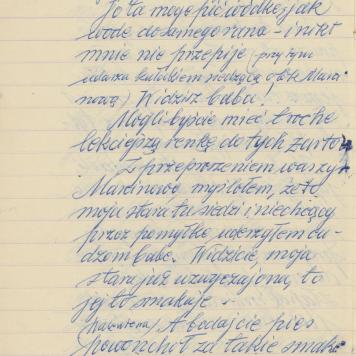 Jo ta moge pić wódkę jak
wodę do samego rana - i nikt
mnie nie przepije (przy tym
udaża kułakiem siedzącą obok Marci
nową) Widzisz babo!
Mogli-byście mieć troche
lekciejszą renkę do tych żartów
Z przeproszeniem waszym
Marcinowo myslołem, że to
moja stara tu siedzi i niechcący
przez pomyłkę uderzyłem cu-
dzom babe. Widzicie moja
stara już uzwyczajona, to
jej to smakuje -
A bodajcie pies
powonchoł za takie smaki